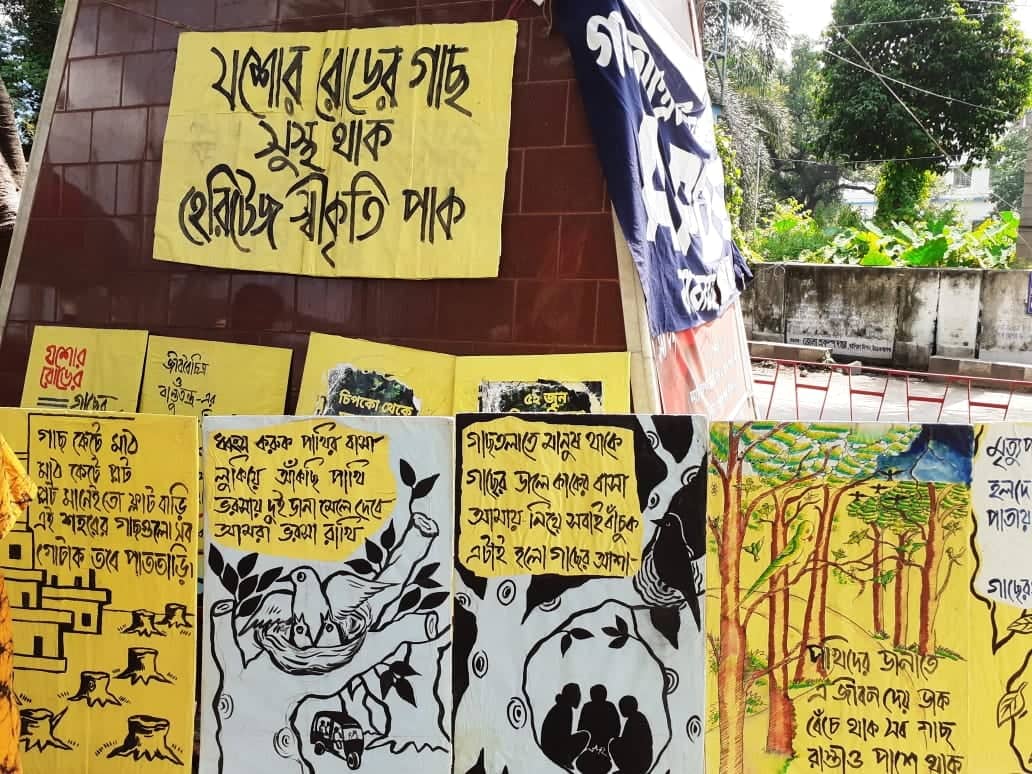 যশোর রোডের গাছ
সুস্থ থাক
হেরিটেজ স্বীকৃতি পাক
যশোর
রোডের
গাছের
জীববৈচিত্র
ও
বাস্তুতন্ত্র-এর
চিপকো থেকে
৫ই জুন
গাছ কেটে মাঠ
মাঠ কেটে প্লট
প্লট মানেই তো ফ্লাট বাড়ি
এই শহরের গাছগুলো সব
গোটাক তবে পাততাড়ি
ধ্বংস করুক পাখির বাসা
লুকিয়ে আঁকছি পাখি
ভরসায় দুই ডানা মেলে দেবে
আমরা ভরসা রাখি
গাছতলাতে মানুষ থাকে
গাছের ডালে কাকের বাসা
আমায় নিয়ে সবাই বাঁচুক
এটাই হলো গাছের আশা
পাখিদের ডানাতে
এ জীবন দেয় ডাক
বেঁচে থাক সব গাছ
রাস্তাও পাশে থাক
হলদে
পাতায়
গাছের